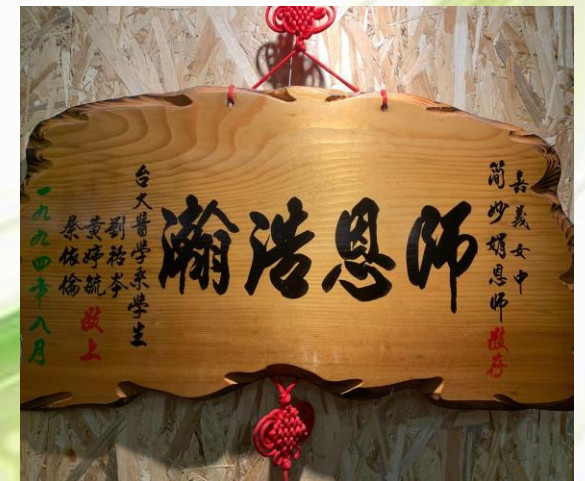 嘉義女中
簡妙娟恩師敬存
師恩浩瀚
台大醫學系學生
劉岑
黃婷毓敬上
依倫
一九九四年八月